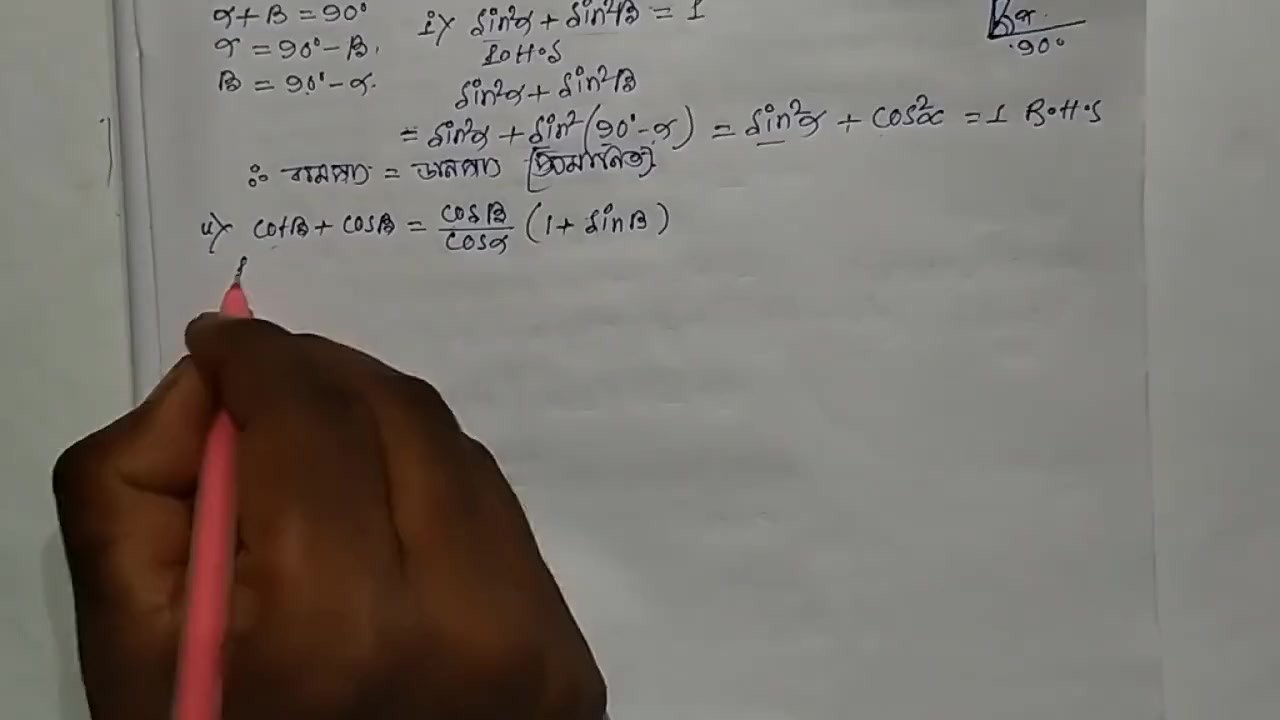 α + β = 90°
i) sin²α + sin²β = 1
α = 90° - β.
L.H.S
β = 90° - α.
sin²α + sin²β
= sin²α + sin²(90° - α) = sin²α + cos²α = 1 R.H.S
∴ বামপক্ষ = ডানপক্ষ [প্রমাণিত]
ii) cotβ + cosβ = cosβ/cosα (1 + sinβ)
α
90°